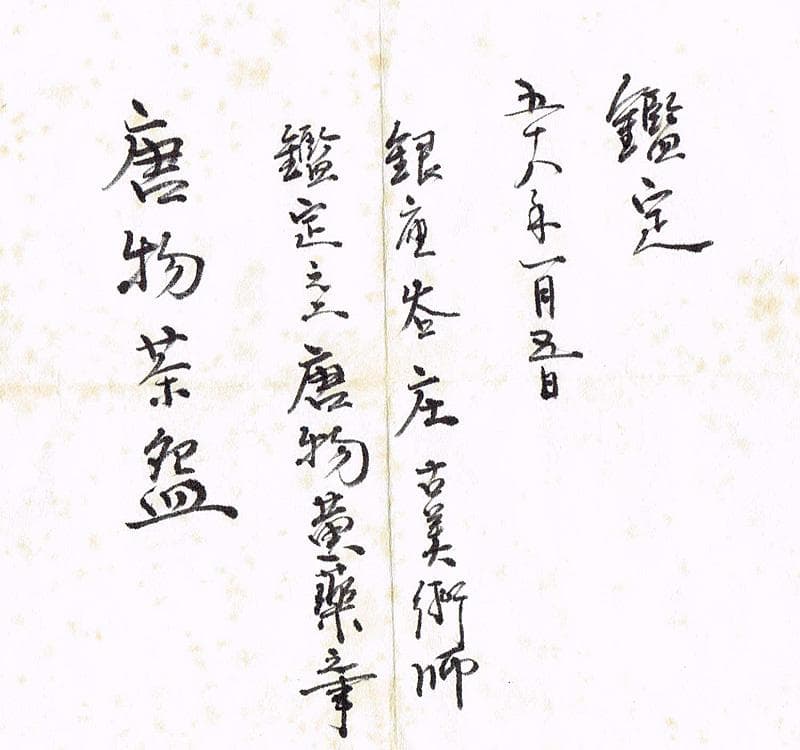 鑑定
五十八年一月五日
銀座谷庄古美術師
鑑定 唐物黄藥之事
唐物茶盌